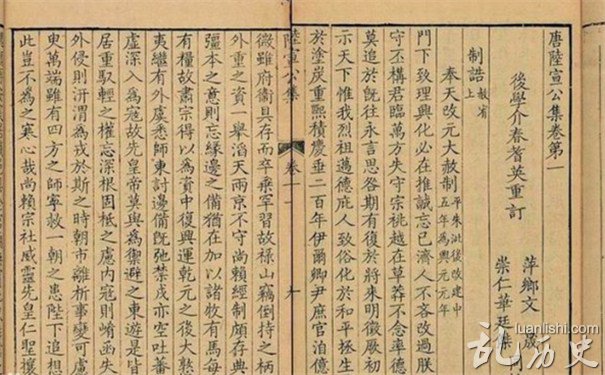 唐陸宣公集卷第一
後學介春耆英重訂
萍鄉文晟
崇仁華廷
制誥 赦宥上
奉天改元大赦制 平朱泚後改建中五年為興元元年
門下致理興化必在推誠忘已濟人不吝改過朕
守丕構君臨萬方失守宗祧越在草莽不念率德
莫追於既往永言思咎期有復於將來明徵厥初
示天下惟我烈祖邁德庇人致俗化於和平拯生
於塗炭重熙積慶垂二百年伊爾卿尹庶官洎億
陸宣公集 卷十一 十
微雖府衛具存而卒乘罕習故祿山竊倒持之柄
外重之資一舉滔天兩京不守尚賴經制頗存典
彊本之意則忘緣邊之備猶在加以諸牧有馬每
有糧故肅宗得以為資中復興運乾元之後大憝
夷繼有外虞悉師東討邊備既弛禁戎亦空吐蕃
虛深入為寇故先皇帝莫與為禦避之東遊是皆
居重馭輕之權忘深根固柢之慮內寇則崤函失
外侵則汧渭為戎於斯之時朝市離析事變可慮
臾萬端雖有四方之師寧救一朝之患陛下追想
此豈不為之寒心哉尚賴宗社威靈先皇仁聖攘
乱历史
luanlishi.com